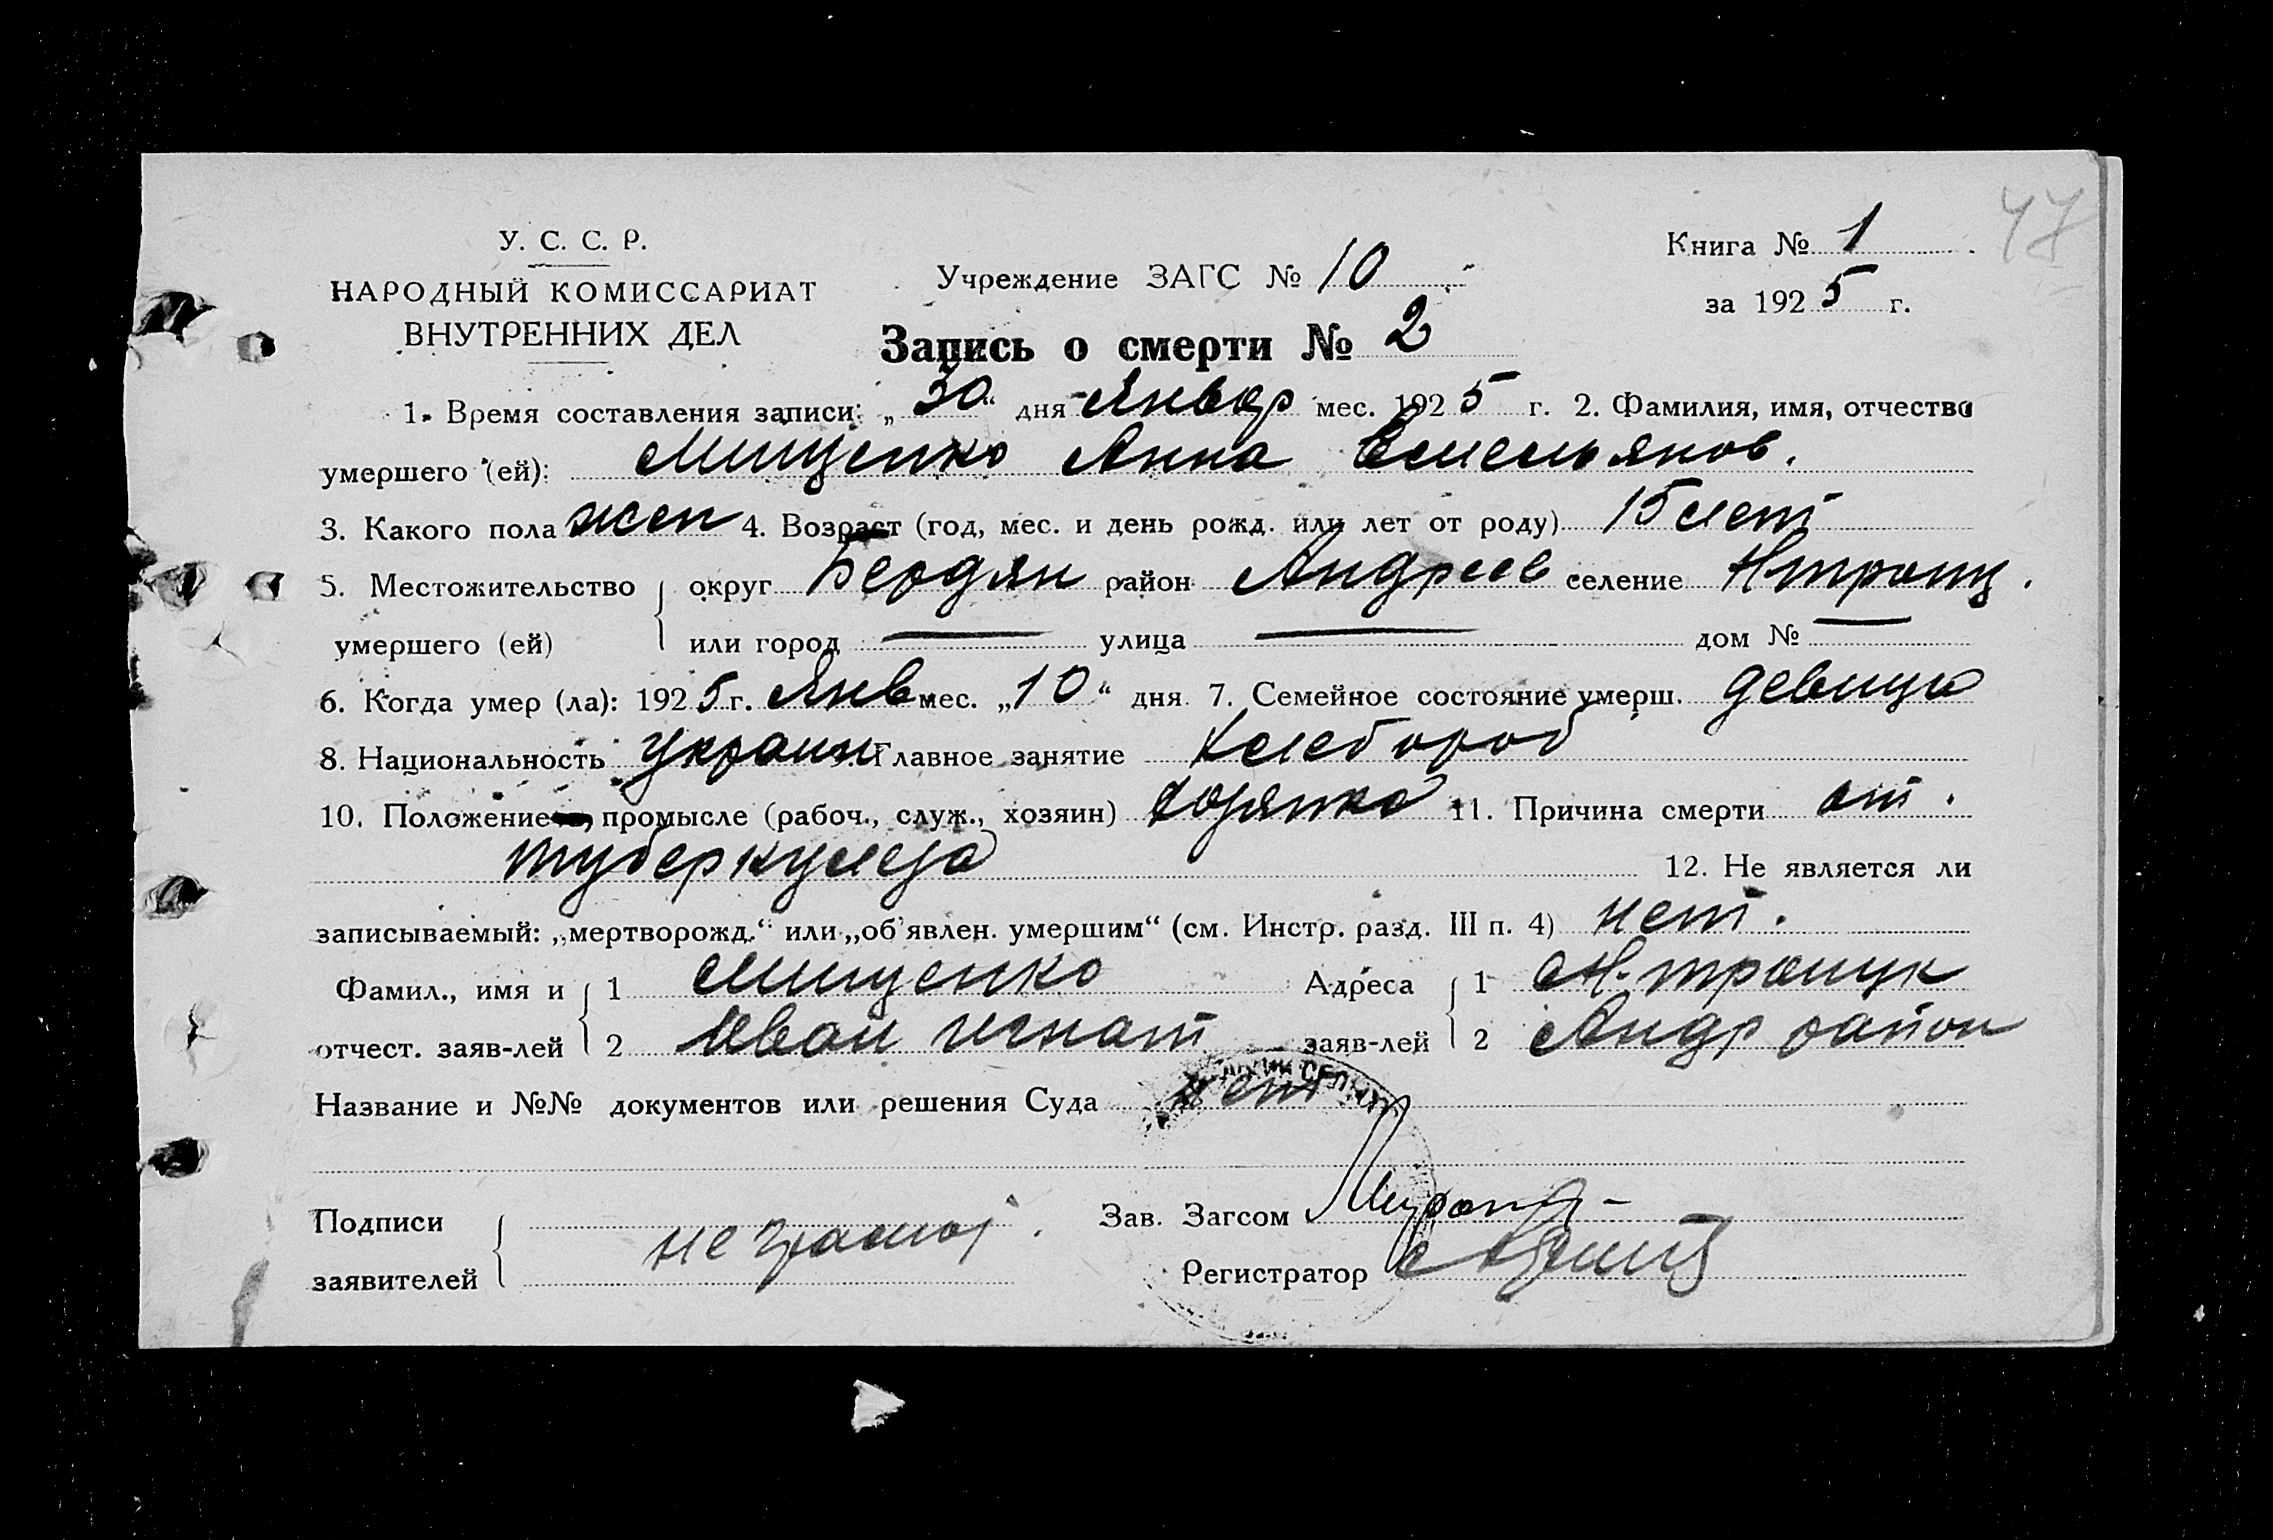 47
У. С. С. Р.
НАРОДНЫЙ КОМИССАРИАТ
ВНУТРЕННИХ ДЕЛ
Учреждение ЗАГС № 10
Книга № 1
за 1925 г.
Запись о смерти № 2
1. Время составления записи: „30“ дня Январ мес. 1925 г. 2. Фамилия, имя, отчество
умершего (ей): Мищенко Анна Емельянов.
3. Какого пола жен 4. Возраст (год, мес. и день рожд. или лет от роду) 15 лет
5. Местожительство округ Бердян район Андреев селение Нтроиц.
умершего (ей) или город — улица — дом № —
6. Когда умер (ла): 1925 г. Янв мес. „10“ дня 7. Семейное состояние умерш. девица
8. Национальность Украин Главное занятие Хлебороб
10. Положение промысле (рабоч., служ., хозяин) 11. Причина смерти от.
туберкулеза 12. Не является ли
записываемый: „мертворожд.“ или „об'явлен. умершим“ (см. Инстр. разд. III п. 4) нет.
Фамил., имя и 1 Мищенко Адреса 1 Н. троицк
отчест. заяв-лей 2 Иван игнат заяв-лей 2 Андр район
Название и №№ документов или решения Суда нет
Подписи неграмот. Зав. Загсом
заявителей Регистратор